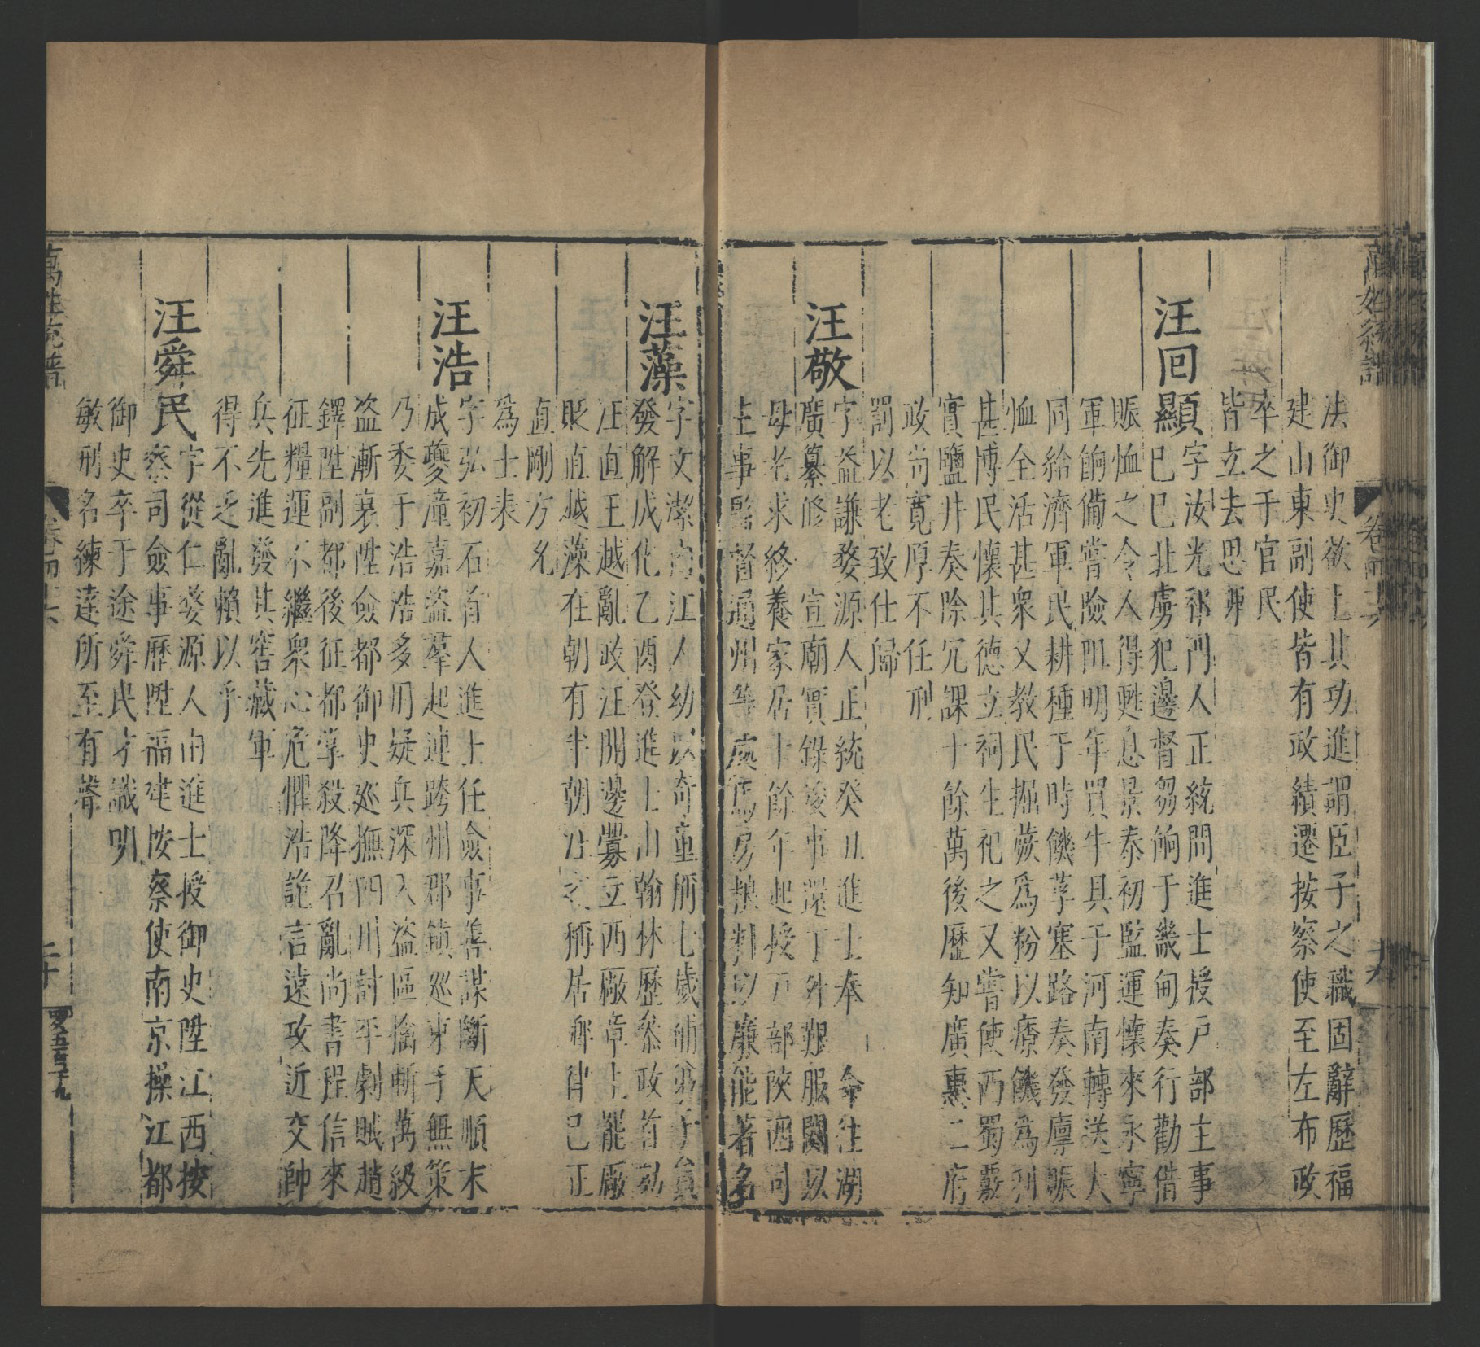 萬姓統譜
卷四十六
法御史欲上其功進謂臣子之職固辭歷福
建山東副使皆有政績遷按察使至左布政
卒之于官民
皆立去思
汪回顯字汝光祁門人正統間進士授戶部主事
己巳北虜犯邊督芻餉于畿甸奏行勸借
賑恤之令人得甦息景泰初監運懷來永寧
軍餉備嘗險阻明年買牛具于河南轉送大
同給濟軍民耕種于時饑莩塞路奏發廩賑
恤全活甚衆又教民掘蕨爲粉以療饑爲利
甚博民懷其德立祠生祀之又嘗使西蜀覈
實鹽井奏除冗課十餘萬後歷知廣惠二府
政尚寬厚不任刑
罰以老致仕歸
汪敬字益謙婺源人正統癸丑進士奉 命往湖
廣纂修 宣廟實錄竣事還丁外艱服闋以
母老求終養家居十餘年起授戶部陝西司
主事督通州等處以廉能著名
汪藻字文潔內江人幼以奇童稱七歲補弟子員
發解成化乙酉登進士由翰林歷參政首劾
汪直王越亂政汪開邊釁立西廠章上罷廠
貶直越藻在朝有半朝之稱居鄉律己正
直剛方允
爲士表
汪浩字弘初石首人進士任僉事善謀斷天順末
成夔潼嘉盜羣起連跨州郡鎮巡束手無策
乃委于浩浩多用疑兵深入盜區擒斬萬級
盜漸衰陞僉都御史巡撫四川討平劇賊趙
鐸陞副都後征都掌殺降召亂尚書程信來
征糧運不繼衆心危懼浩詭言遠攻近交帥
兵先進發其窖藏軍
得不乏亂賴以乎
汪舜民字從仁婺源人由進士授御史陞江西按
察司僉事歷陞福建按察使南京操江都
御史卒于途舜民才識明
敏刑名練達所至有聲
萬姓統譜
卷四十六
二十